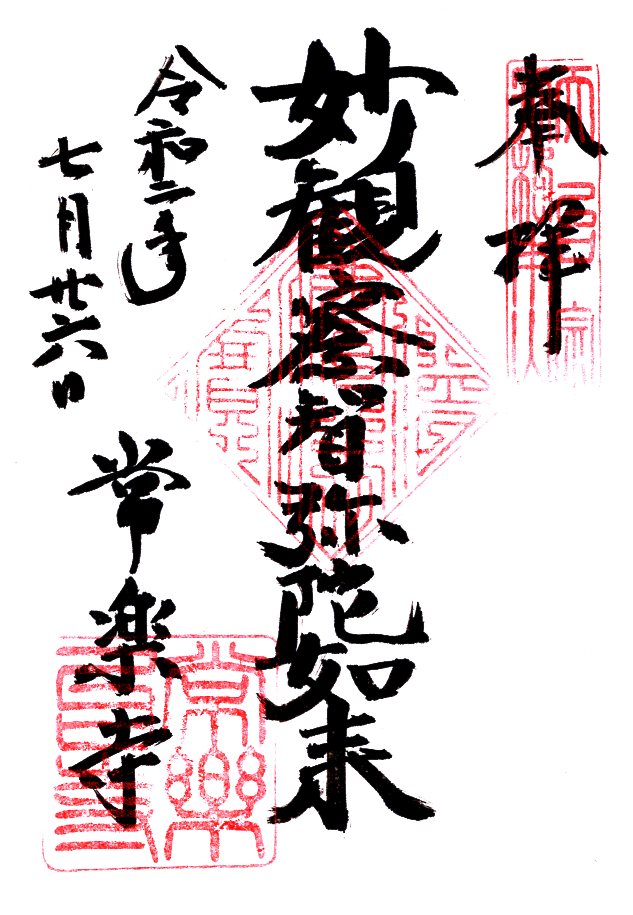 奉拝
妙観察智弥陀如来
令和二年
七月廿六日
常楽寺